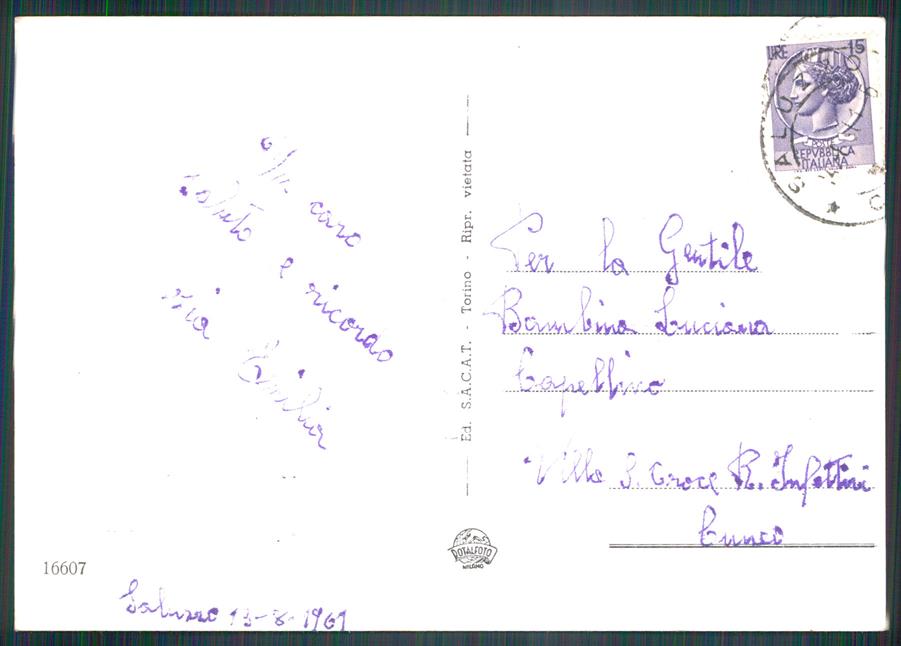 Un caro
saluto e ricordo
zia Emilia
Saluzzo 13-8-1961
16607
Ed. S.A.C.A.T. - Torino - Ripr. vietata
ROTALFOTO
MILANO
LIRE 15
POSTE
REPVBBLICA
ITALIANA
SALUZZO
Per la Gentile
Bambina Luciana
Capellino
Villa S. Croce R.
Cuneo